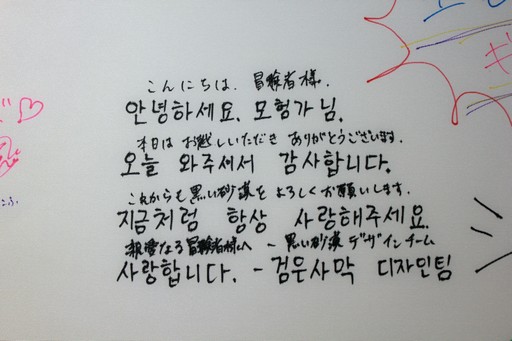 こんにちは. 冒険者様.
안녕하세요. 모험가님.
本日は お越しいただき ありがとうございます.
오늘 와주셔서 감사합니다.
これからも 黒い砂漠を よろしくお願いします.
지금처럼 항상 사랑해주세요.
親愛なる 冒険者様へ - 黒い砂漠 デザインチーム
사랑합니다. - 검은사막 디자인팀